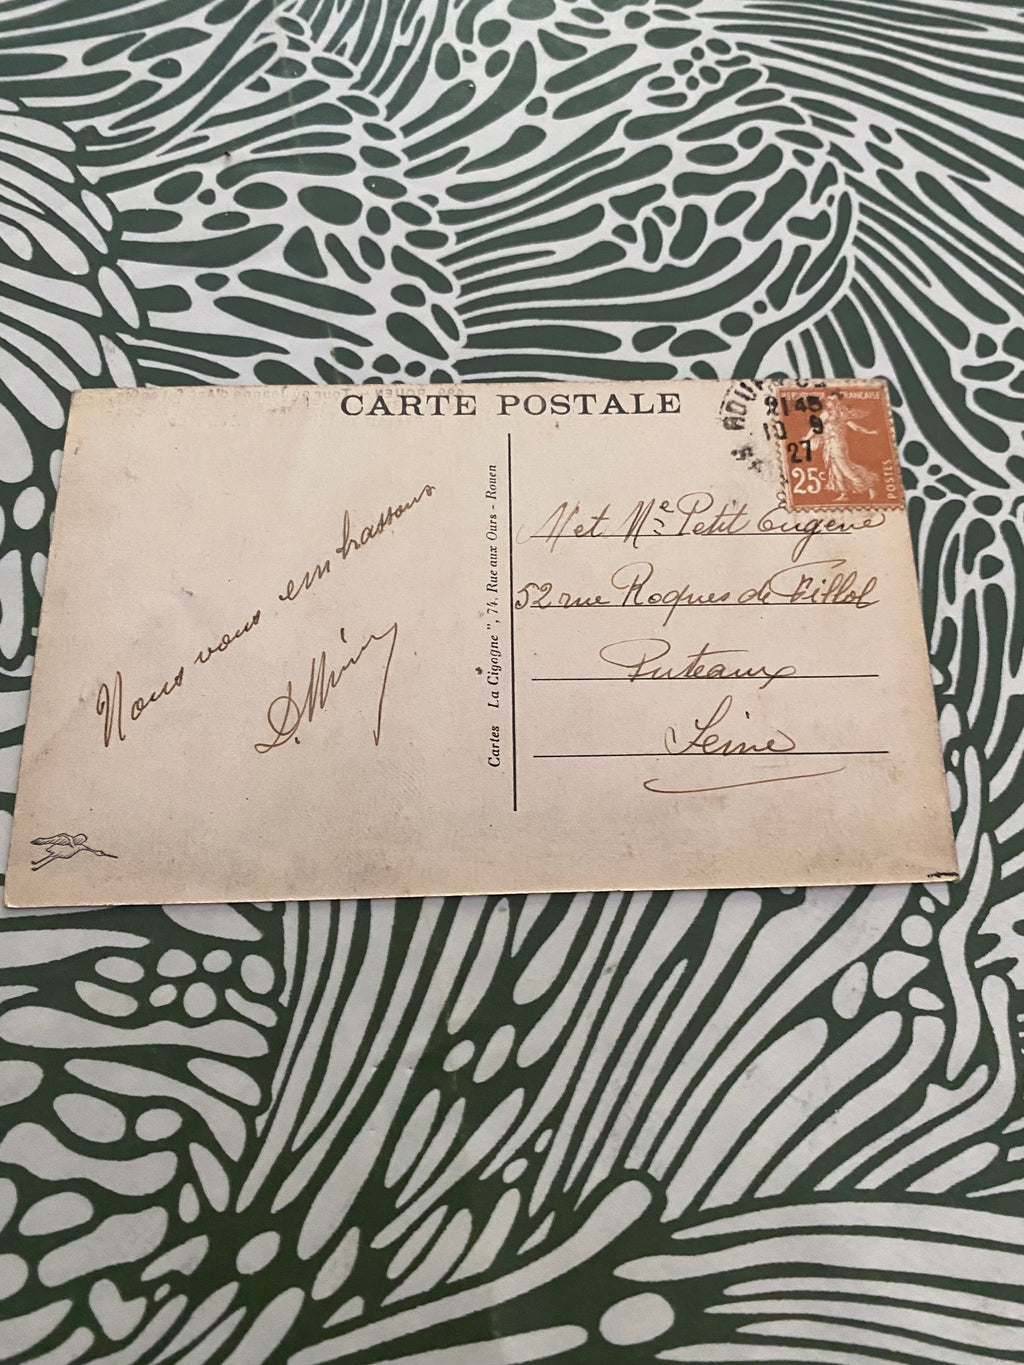 CARTE POSTALE
ROUEN
21 45
10 9
27
FRANÇAISE
25c
POSTES
Nous vous embrassons
Cartes La Cigogne", 74, Rue aux Ours - Rouen
M et Me Petit Eugene
52 rue Roques de Fillol
Puteaux
Seine